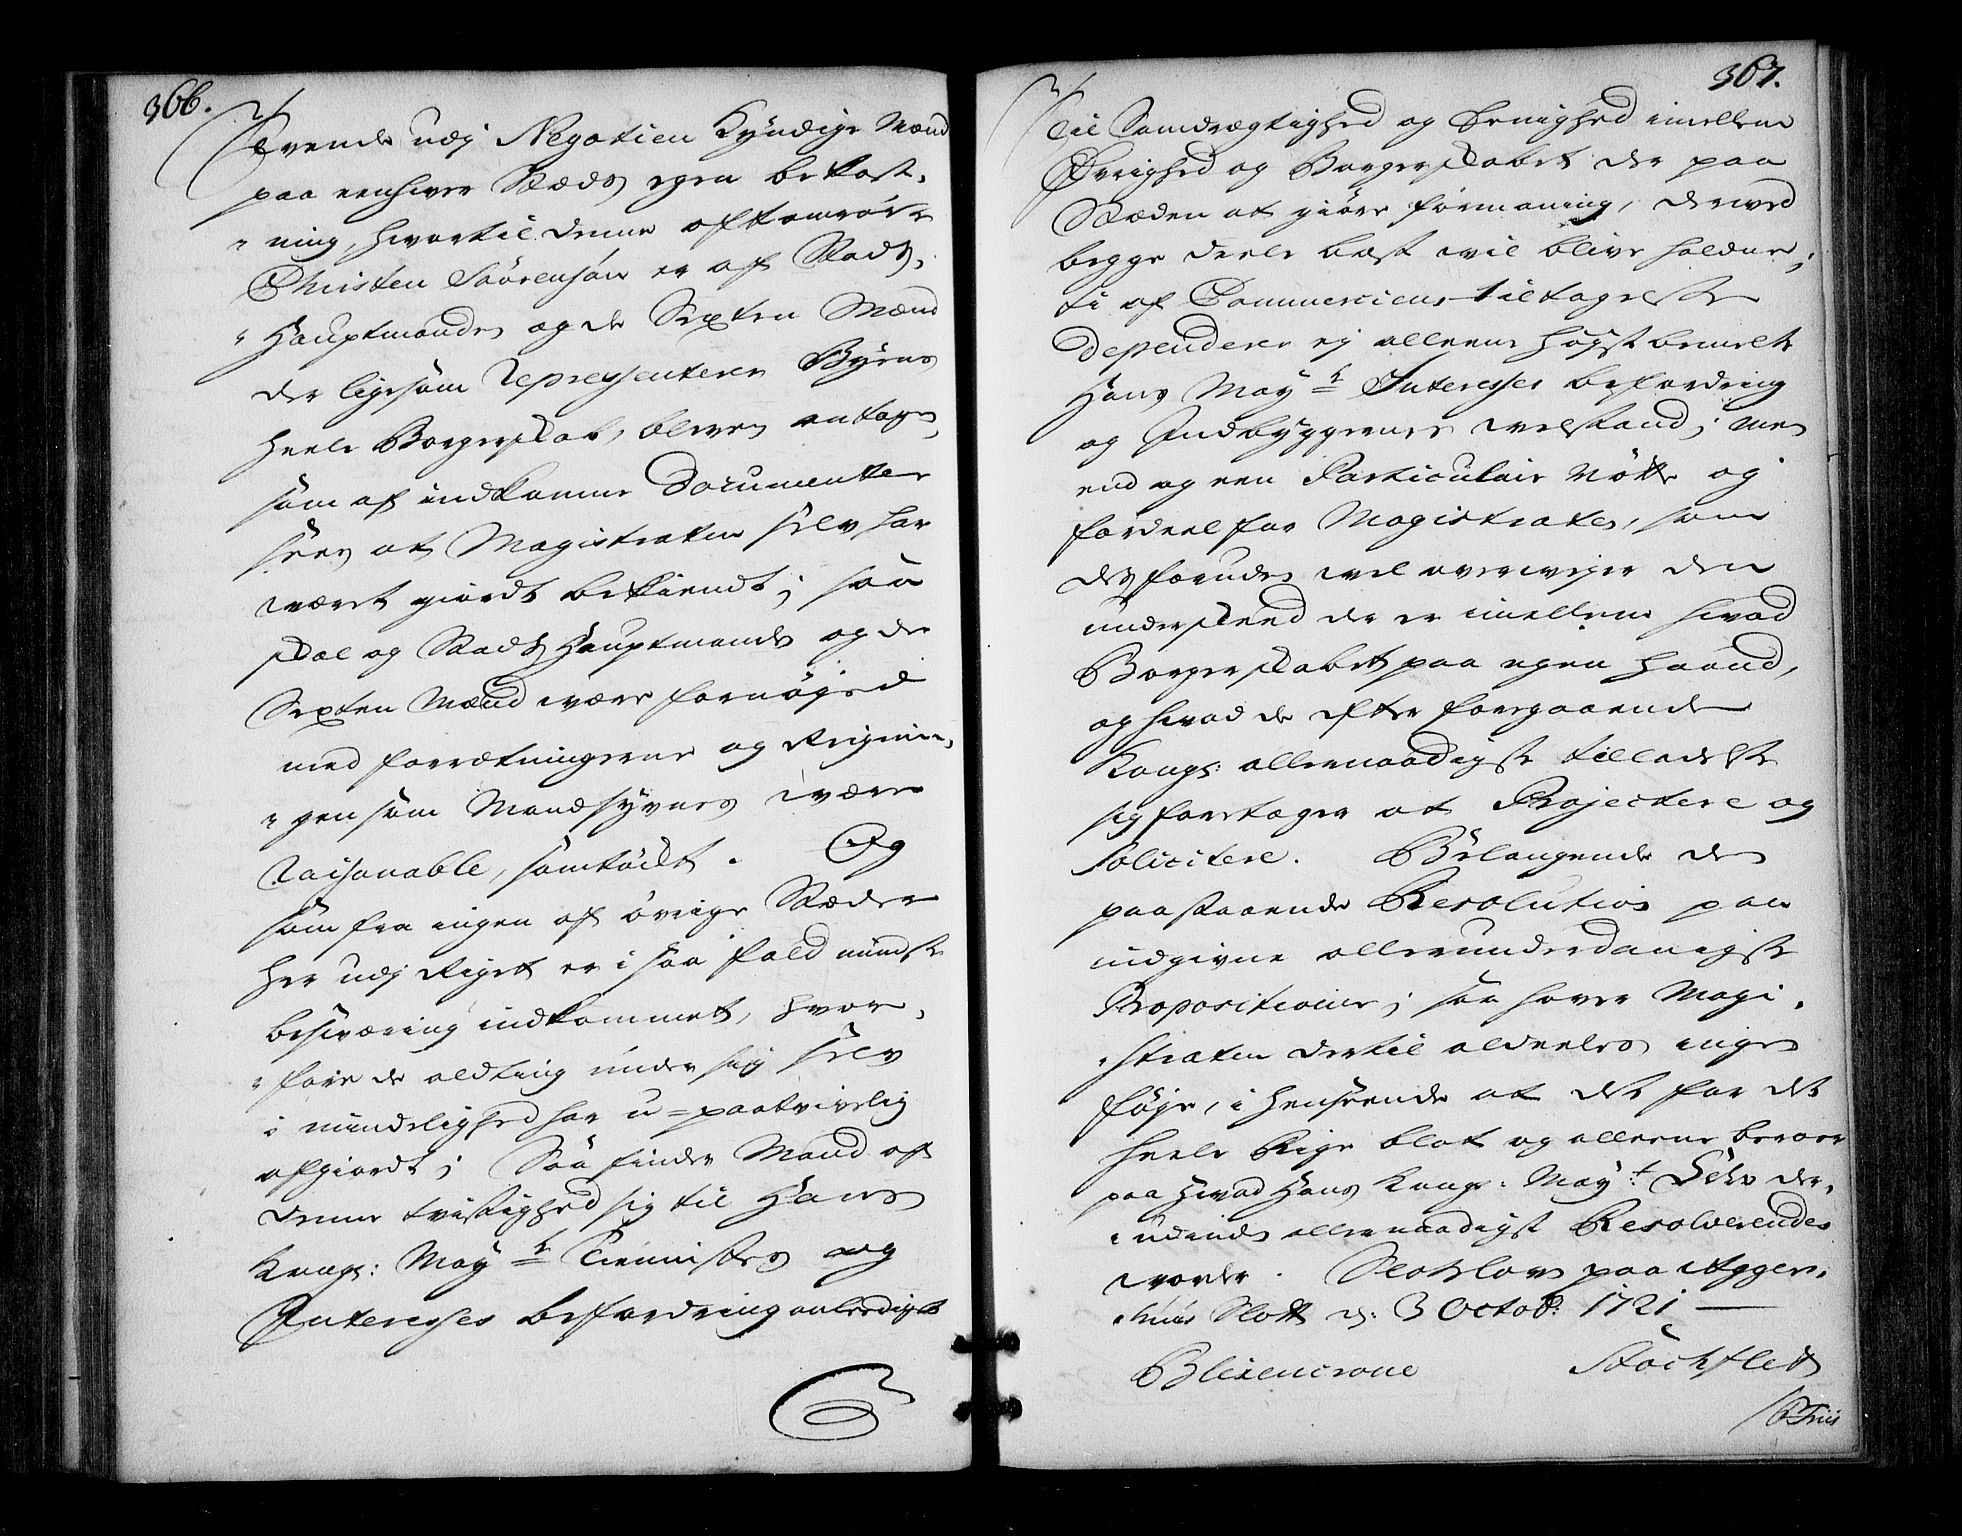 366.
tvende udj Negotien Kyndige Mænd
paa eenhver Stæds egen bekost-
ning, hvortil denne oftomrørte
Christen Sørensøn er af Stads-
Hauptmanden og de Sexten Mænd
der ligesom repræsenterer Byens
heele Borgerskab, bleven antagen,
som af indkomne Documenter
sees at Magistraten selv har
været giordt bekiendt; saa
skal og Stads Hauptmanden og de
Sexten Mænd være fornøjed
med forrætningerne og Reignin-
gen som Mandsyvnes være
raisonable, samtøckt. Og
som fra ingen af øvrige Stæder
her udj Riget er i saa fald mindste
besværing indkommet, hvor-
fore de alting under sig selv
i mindelighed har u-paatvivelig
afgiordt; Saa finder Mand af
denne tvistighed sig til Hans
Kongs: May ts Tiennistes og
Interesses befordring anledigt
367.
Til Samdrægtighed og Eenighed imellem
Øvrighed og Borgerskabet der paa
Stæden at giøre formaning, derved
begge deele best vil blive holden;
ti af Commerciens tiltagelse
dependerer ej alleene høgstbemelte
Hans May ts Interesses befordring
og Indbyggernes velstand; men
end og een Particulair nøtte og
fordeel for Magistraten, som
desforuden vel overvejer den
underskeed der er imellem hvad
Borgerskabet paa egen haand,
og hvad de efter foregaaende
Kongs: allernaadigste tilladelse
sig foretager at Projectere og
solicitere. Belangende den
paastaaende Resolution paa
indgivne allerunderdanigste
Propositioner; saa haver Magi-
straten dertil aldeeles ingen
føje, i henseende at det for det
heele Rige blot og alleene beroer
paa hvad Hans Kongs: May t: Selv der-
udinde allernaadigst Resolverendes
vorder. Slotsloven paa Agger-
huus Slott d: 3 Octob: 1721
Blixencrone Stockfleth
Friis